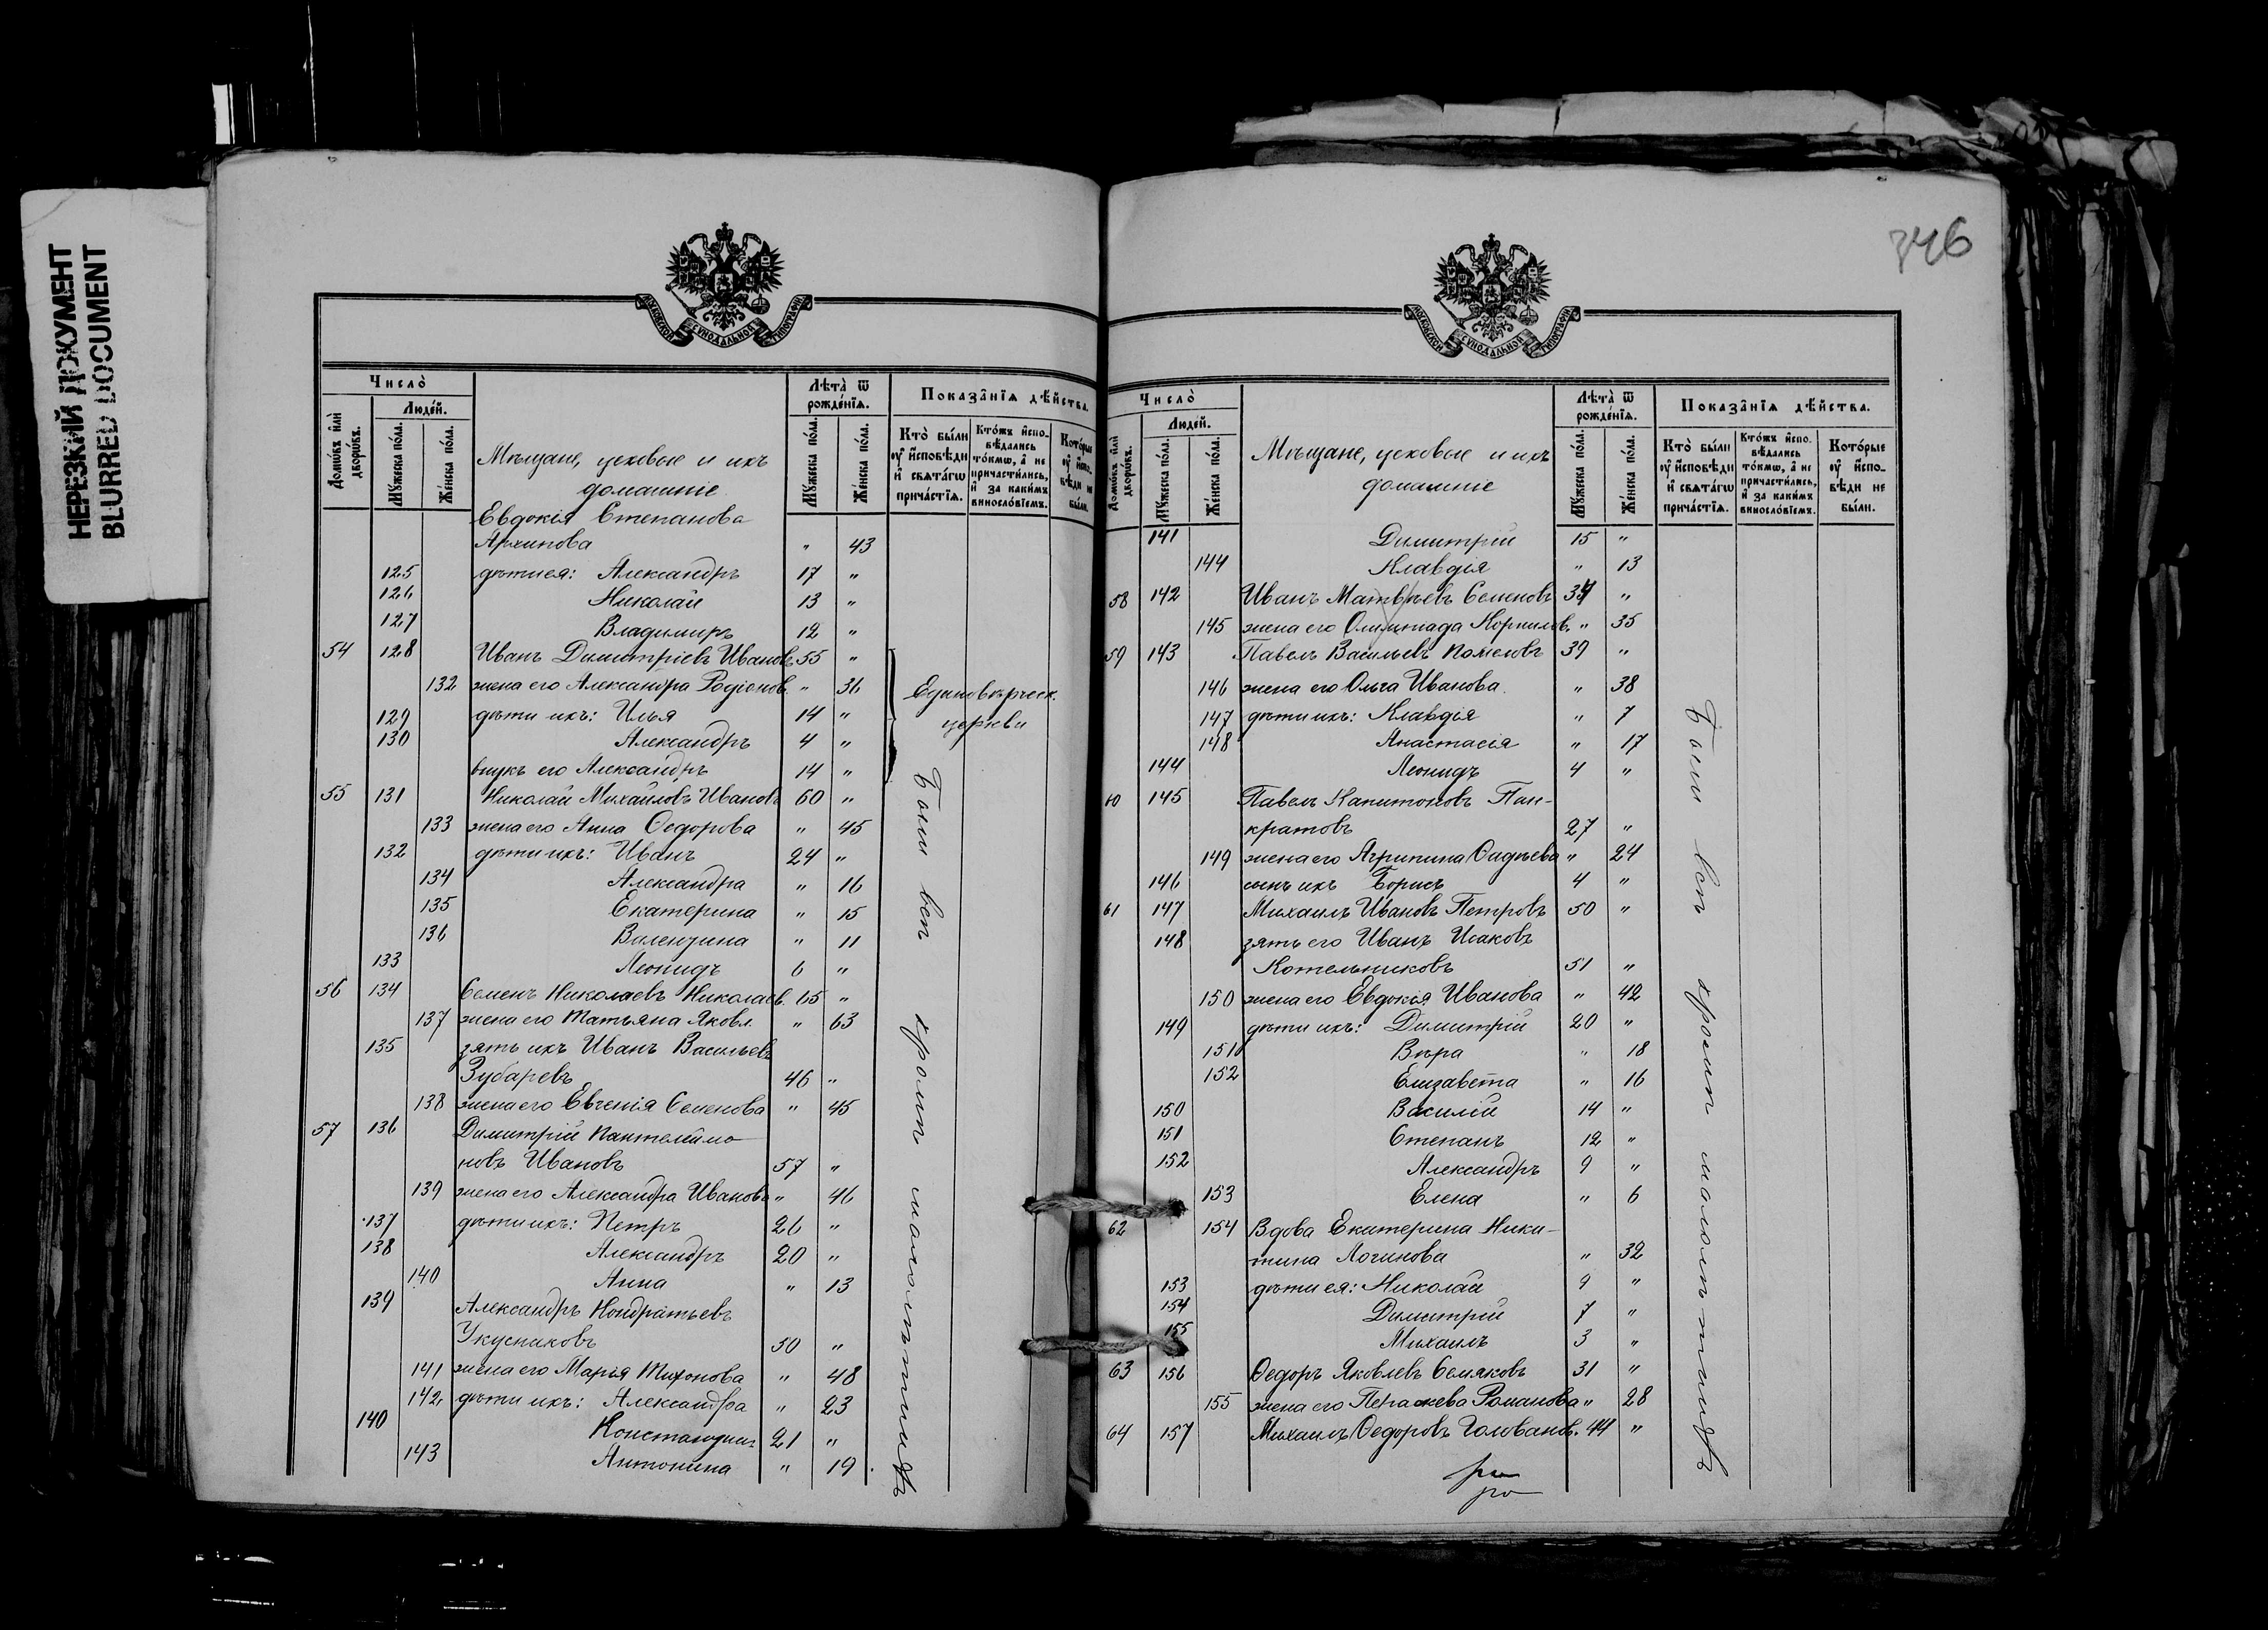 НЕРЕЗКИЙ ДОКУМЕНТ
BLURRED DOCUMENT
МОСКОВСКОЙ СУНОДАЛЬНОЙ ТИПОГРАФІИ
Число̀
Домѡ́въ и҆лѝ дворѡ́въ.
Люде́й.
Мꙋ́жеска по́ла.
Же́нска по́ла.
Мѣщане, цеховые и ихъ
домашніе
Лѣта̀ ѿ рожде́нїѧ.
Мꙋ́жеска по́ла.
Же́нска по́ла.
Показа̂нїѧ дѣ́йства.
Кто̀ бы́ли ᲂу҆ и҆сповѣ́ди и҆ свѧта́гѡ прича́стїѧ.
Кто́жъ и҆спо- вѣ́дались то́кмѡ, а҆ не причасти́лись, и҆ за каки́мъ винословїемъ.
Кото́рые ᲂу҆ и҆спо- вѣ́ди не бы́ли.
Евдокія Степанова
Архипова " 43
125 дѣти ея: Александръ 17 "
126 Николай 13 "
127 Владимиръ 12 "
54 128 Иванъ Димитріевъ Ивановъ 55 "
132 жена его Александра Родіонов. " 36
Единовѣрческ.
церкви
129 дѣти ихъ: Илья 14 "
130 Александръ 4 "
внукъ его Александръ 14 "
55 131 Николай Михайловъ Ивановъ 60 "
133 жена его Анна Ѳедорова " 45
132 дѣти ихъ: Иванъ 24 "
134 Александра " 16
135 Екатерина " 15
136 Валентина " 11
133 Леонидъ 6 "
56 134 Семенъ Николаевъ Николаев. 65 "
137 жена его Татьяна Яковл. " 63
135 зять ихъ Иванъ Васильевъ
Зубаревъ 46 "
138 жена его Евгенія Семенова " 45
57 136 Димитрій Пантелеймо-
новъ Ивановъ 57 "
139 жена его Александра Иванова " 46
137 дѣти ихъ: Петръ 26 "
138 Александръ 20 "
140 Анна " 13
139 Александръ Кондратьевъ
Укусниковъ 50 "
141 жена его Марія Тихонова " 48
142 дѣти ихъ: Александра " 23
140 Константинъ 21 "
143 Антонина " 19
Были всѣ кромѣ малолѣтнихъ
346
МОСКОВСКОЙ СУНОДАЛЬНОЙ ТИПОГРАФІИ
Число̀
Домѡ́въ и҆лѝ дворѡ́въ.
Люде́й.
Мꙋ́жеска по́ла.
Же́нска по́ла.
Мѣщане, цеховые и ихъ
домашніе
Лѣта̀ ѿ рожде́нїѧ.
Мꙋ́жеска по́ла.
Же́нска по́ла.
Показа̂нїѧ дѣ́йства.
Кто̀ бы́ли ᲂу҆ и҆сповѣ́ди и҆ свѧта́гѡ прича́стїѧ.
Кто́жъ и҆спо- вѣ́дались то́кмѡ, а҆ не причасти́лись, и҆ за каки́мъ винословїемъ.
Кото́рые ᲂу҆ и҆спо- вѣ́ди не бы́ли.
141 Димитрій 15 "
144 Клавдія " 13
58 142 Иванъ Матвѣевъ Семеновъ 34 "
145 жена его Олимпіада Корнилов. " 35
59 143 Павелъ Васильевъ 39 "
146 жена его Ольга Иванова. " 38
147 дѣти ихъ: Клавдія " 7
148 Анастасія " 17
144 Леонидъ 4 "
60 145 Павелъ Капитоновъ Пан-
кратовъ 27 "
149 жена его Агрипина Фадѣева " 24
146 сынъ ихъ Борисъ 4 "
61 147 Михаилъ Ивановъ Петровъ 50 "
148 зять его Иванъ Исаковъ
Котельниковъ 51 "
150 жена его Евдокія Иванова " 42
149 дѣти ихъ: Димитрій 20 "
151 Вѣра " 18
152 Елизавета " 16
150 Василій 14 "
151 Степанъ 12 "
152 Александръ 9 "
153 Елена " 6
62 154 Вдова Екатерина Ники-
тина Логинова " 32
153 дѣти ея: Николай 9 "
154 Димитрій 7 "
155 Михаилъ 3 "
63 156 Ѳедоръ Яковлевъ Семяковъ 31 "
155 жена его Параскева Романова " 28
64 157 Михаилъ Ѳедоровъ Голованов. 44 "
Были всѣ кромѣ малолѣтнихъ